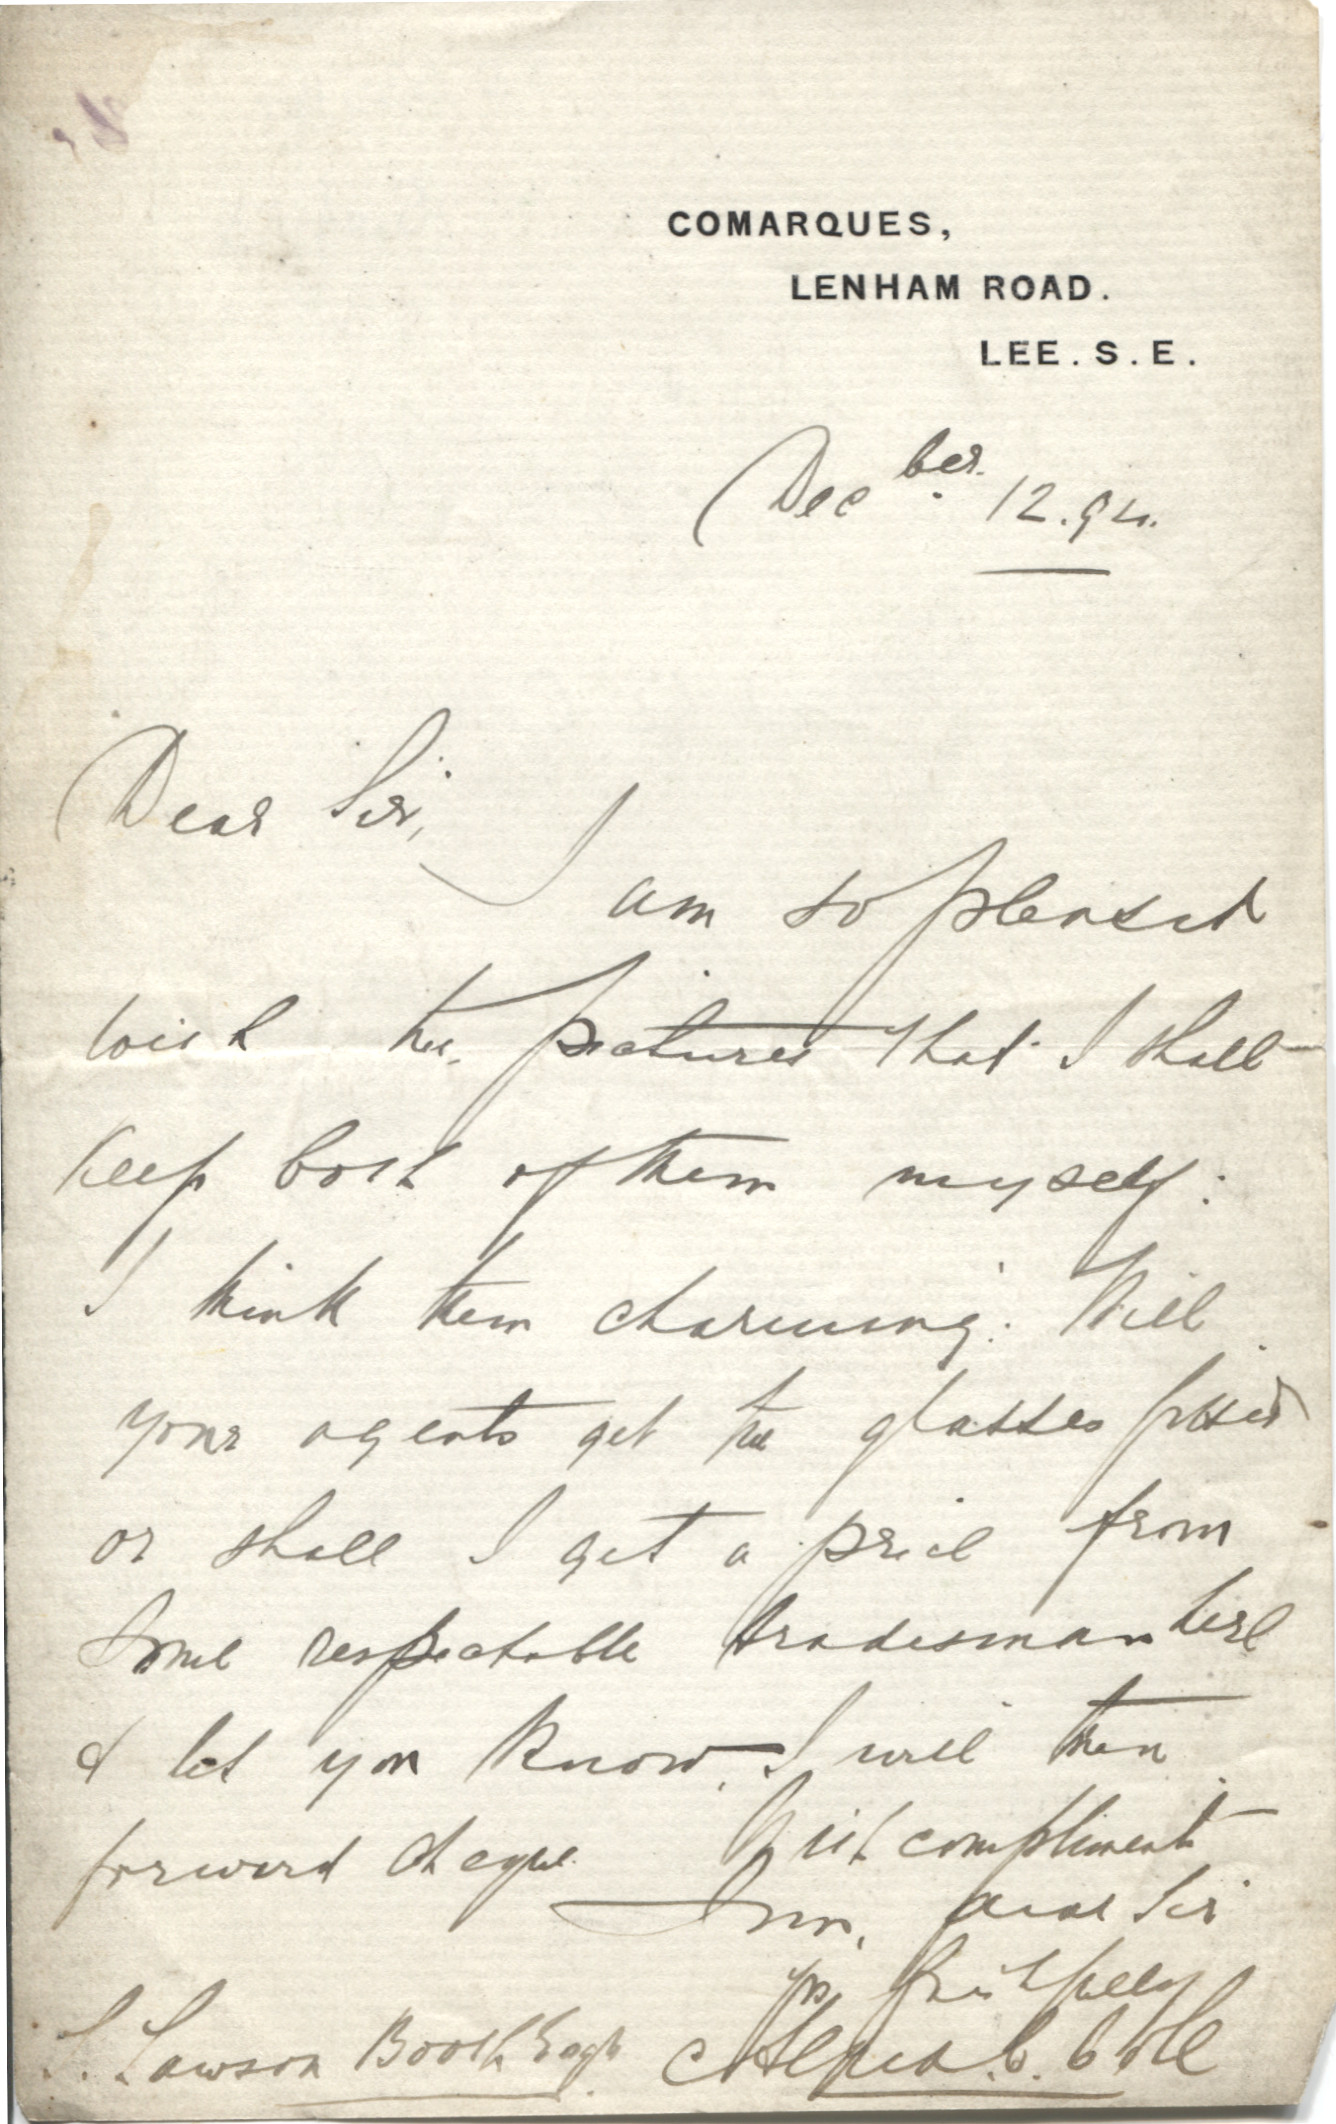 COMARQUES,
LENHAM ROAD.
LEE. S. E.
Dec ber. 12. 94.
Dear Sir,
I am so pleased
with the pictures that I shall
keep both of them myself:
I think them charming. Will
your agents get the glasses fixed
or shall I get a price from
some respectable tradesman here
& let you know. I will then
forward cheque. With compliments
I am, dear Sir
yrs faithfully
Lawson Booth Esqr
Cole